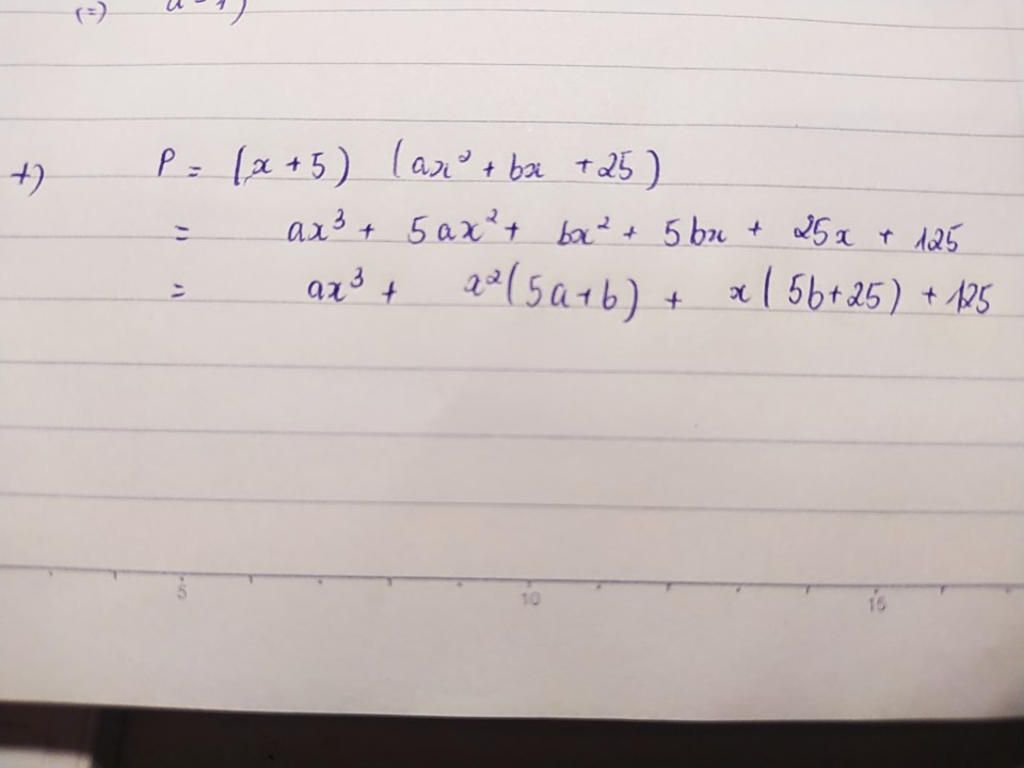 (=)
+) P = (x + 5) (ax² + bx + 25)
= ax³ + 5ax² + bx² + 5bx + 25x + 125
= ax³ + x²(5a+b) + x(5b+25) + 125
5 10 15